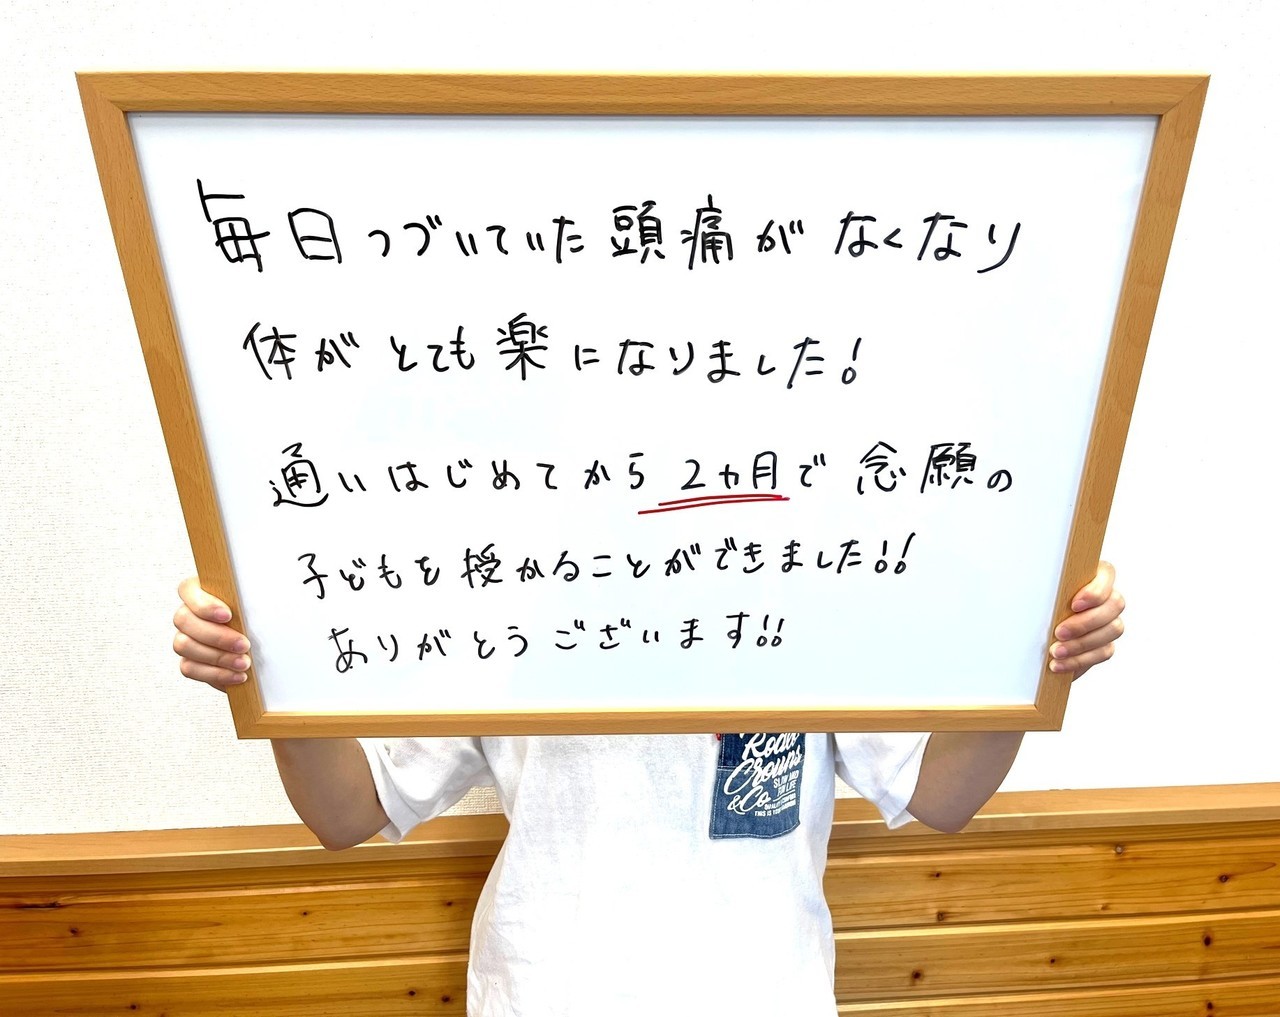 毎日つづいていた頭痛がなくなり
体がとても楽になりました!
通いはじめてから2ヵ月で念願の
子どもを授かることができました!!
ありがとうございます!!
Rodeo
Crowns
& Co
SLOW AND
FOR LIFE